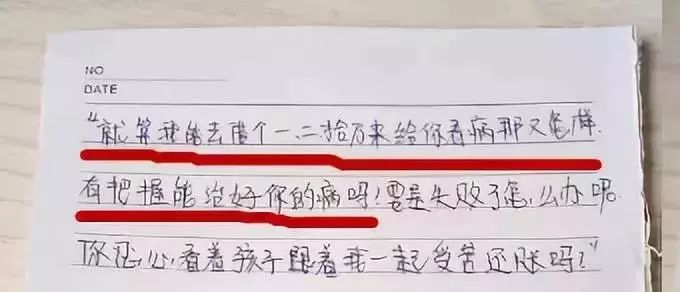 NO
DATE
“就算我能去借个一、二拾万来给你看病那又怎样.
有把握能治好你的病吗?要是失败了怎么办呢.
你忍心看着孩子跟着我一起受苦还账吗?”